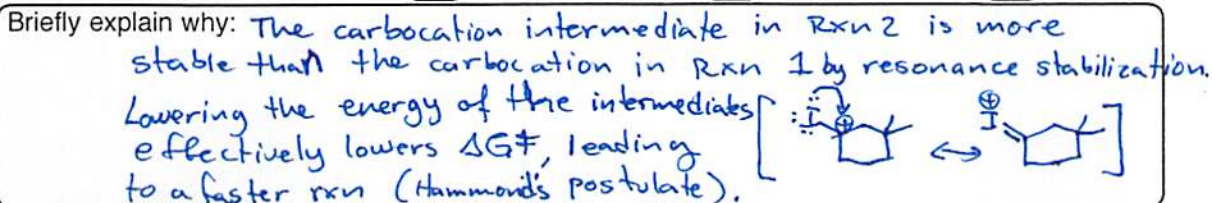 Briefly explain why: The carbocation intermediate in Rxn 2 is more
stable than the carbocation in Rxn 1 by resonance stabilization.
Lowering the energy of the intermediates
effectively lowers ΔG‡, leading
to a faster rxn (Hammond's postulate).
[ :Ï: ⊕ ↔ ⊕ I ]